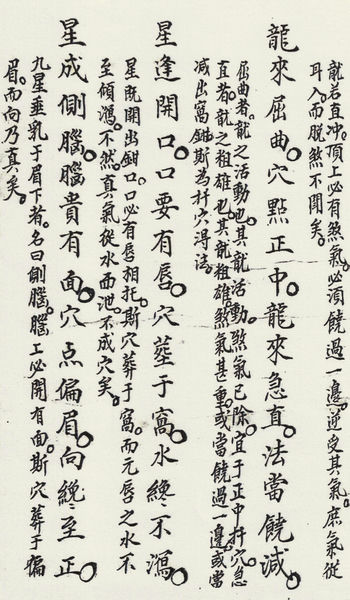 龍若直冲。頂上必有煞氣。必須饒過一邊。逆受其氣。庶氣從
耳入。而脫煞不鬪矣。
龍來屈曲。穴點正中。龍來急直。法當饒減。
屈曲者。龍之活動也。其龍活動。煞氣已除。宜于正中扦穴。急
直者。龍之祖雄也。其龍祖雄。煞氣甚重。或當饒過一邊。或當
減出窩鉗。斯為扦穴得法。
星逢開口。口要有唇。穴葬于窩。水纔不瀉。
星既開出鉗口。口必有唇相托。斯穴葬于窩。而元唇之水不
至傾瀉。不然。真氣從水而泄。不成穴矣。
星成側腦。腦貴有面。穴点偏眉。向纔至正。
九星垂乳于眉下者。名曰側腦。腦上必開有面。斯穴葬于偏
眉。而向乃真矣。